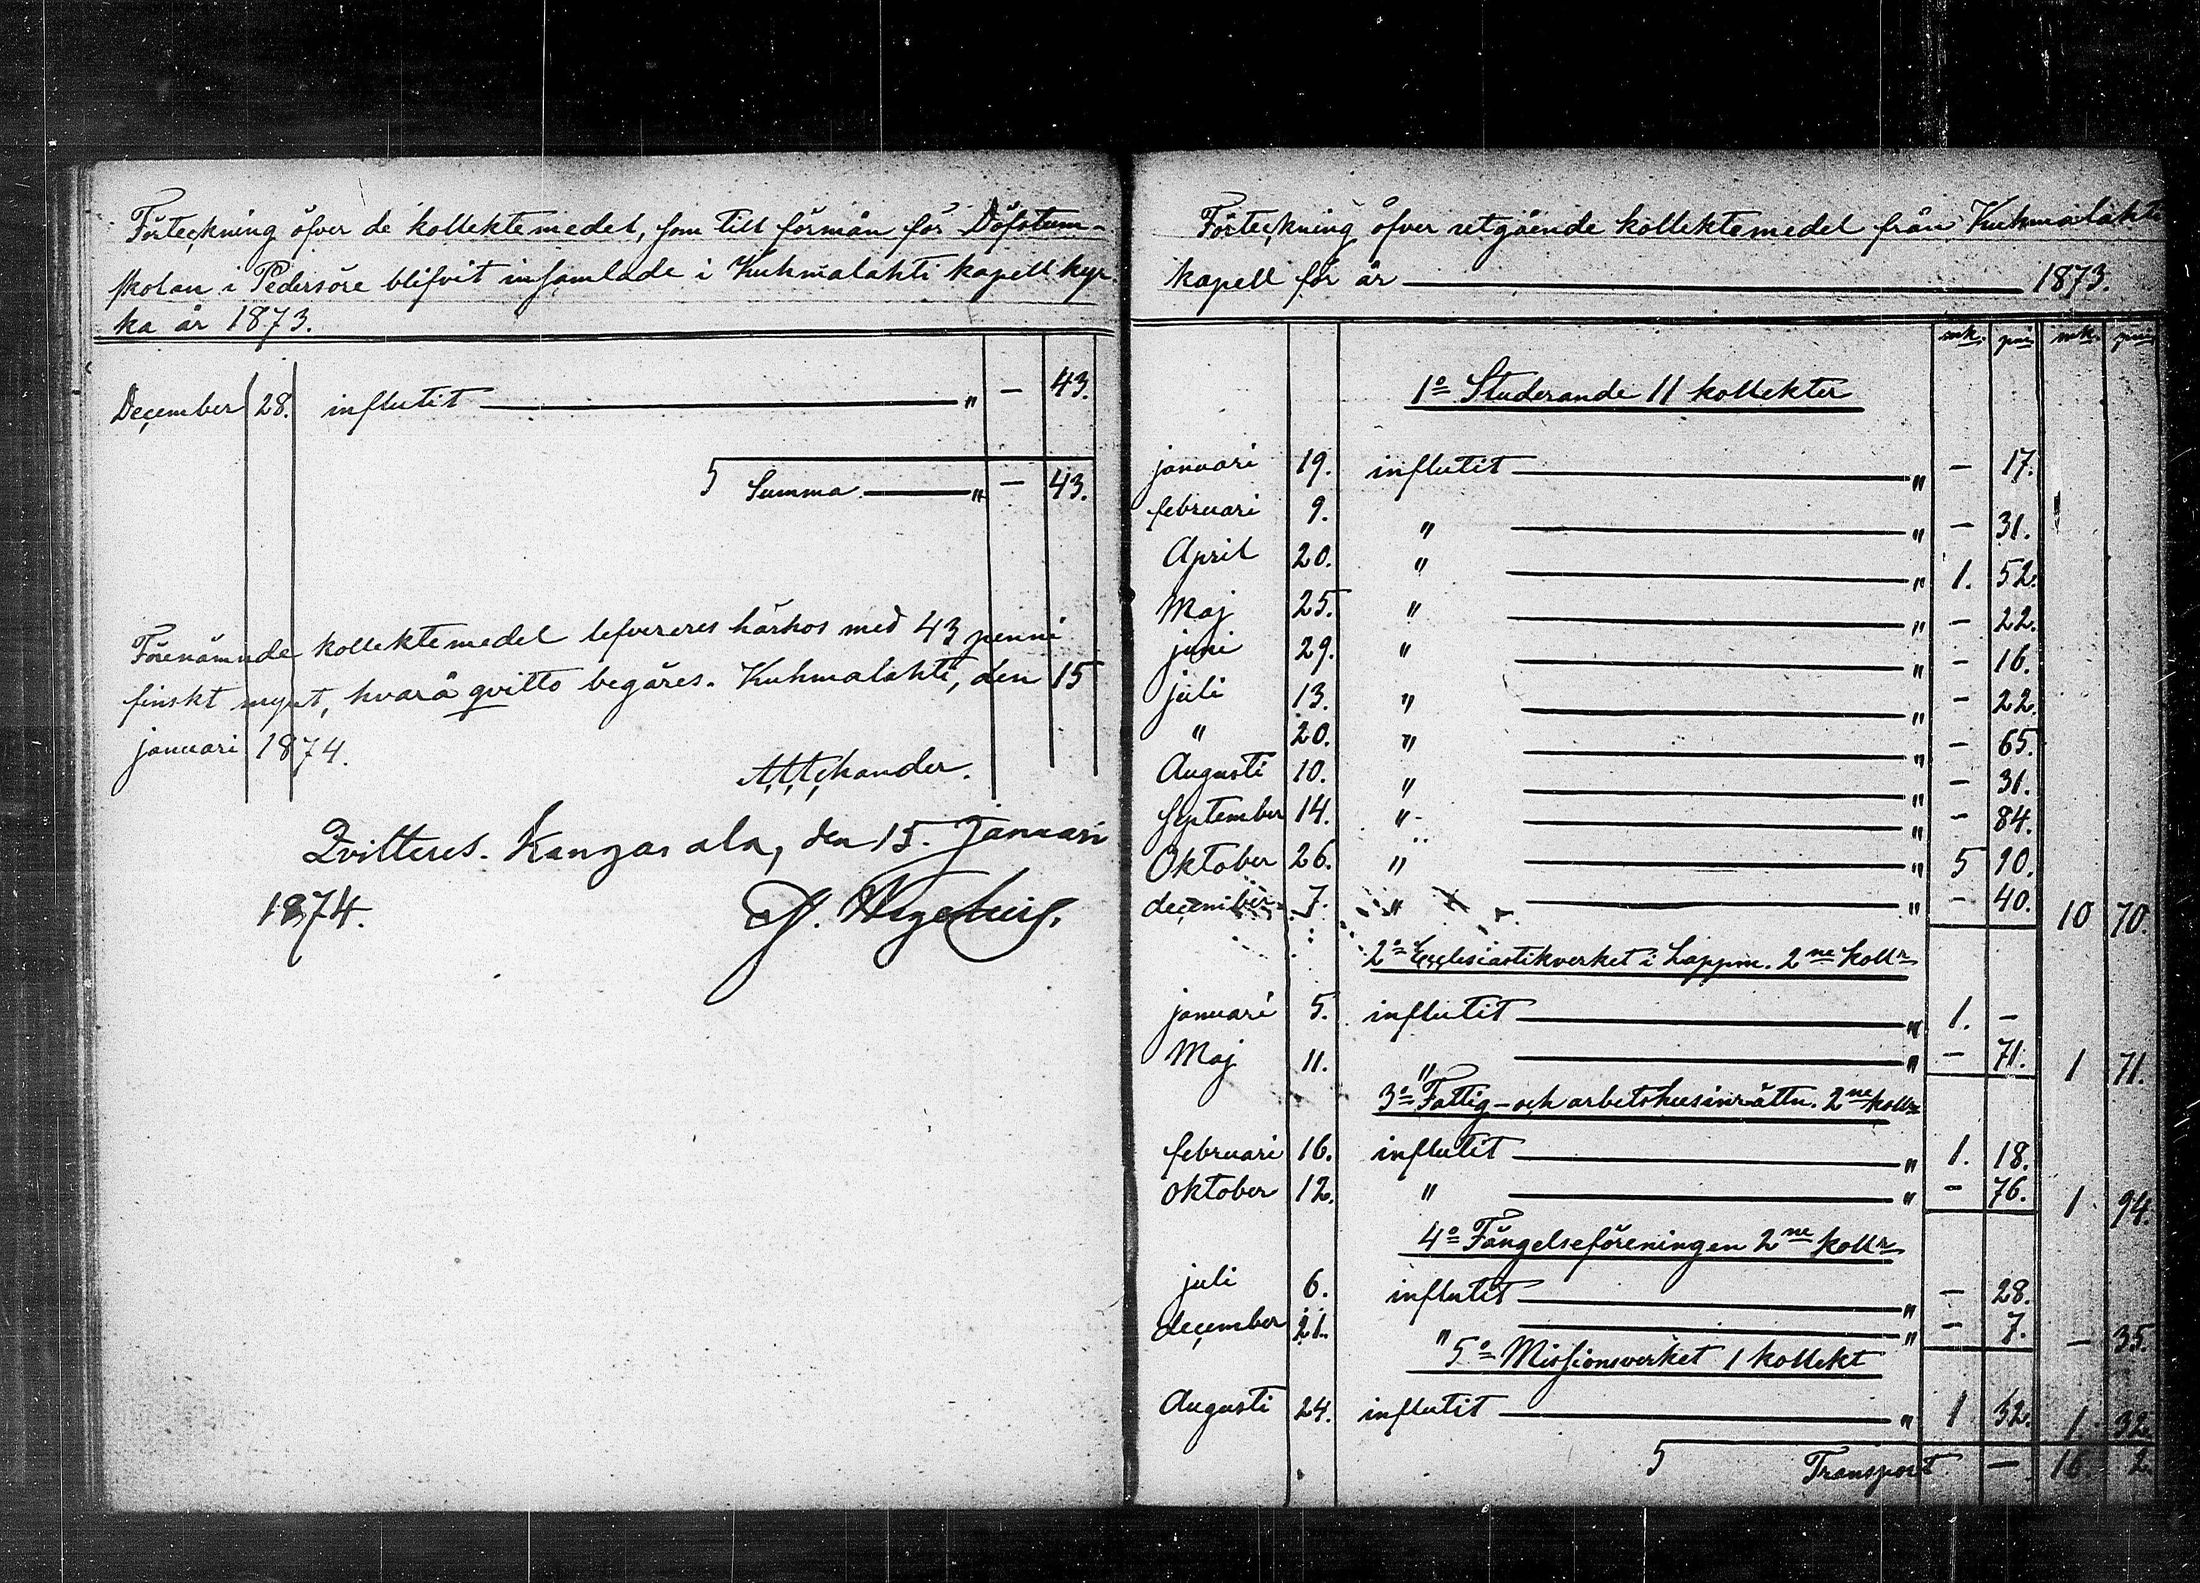 Förteckning öfver de kollektemedel, som till förmån för Döfstum-
skolan i Pedersöre blifvit insamlade i Kuhmalahti kapellkyr-
ka år 1873.
December 28. influtit " — 43.
Summa " — 43.
Förenämnde kollektemedel lefvereres härhos med 43 penni
finskt mynt, hvarå qvitto begäres. Kuhmalahti, den 15
januari 1874.
Qvitteres. Kangasala, den 15. Januari
1874.
Förteckning öfver utgående kollektemedel från Kuhmalahti
kapell för år 1873.
mk. pni mk. pni
1o Studerande 11 kollekter
januari 19. influtit " — 17.
februari 9. " " — 31.
April 20. " " 1. 52.
Maj 25. " " — 22.
juni 29. " " — 16.
juli 13. " " — 22.
" 20. " " — 65.
Augusti 10. " " — 31.
September 14. " " — 84.
Oktober 26. " " 5 90.
december 7. " " — 40. 10 70.
2o Ecclesiastikverket i Lappm. 2ne kollr
januari 5. influtit " 1. —
Maj 11. " " — 71. 1 71.
3o Fattig- och arbetshusinrättn. 2ne kollr
februari 16. influtit " 1. 18.
Oktober 12. " " — 76. 1 94.
4o Fängelseföreningen 2ne kollr
juli 6. influtit " — 28.
december 21. " " — 7. — 35.
5o Missionsverket 1 kollekt
Augusti 24. influtit " 1 32. 1 32.
Transport — 16 2.